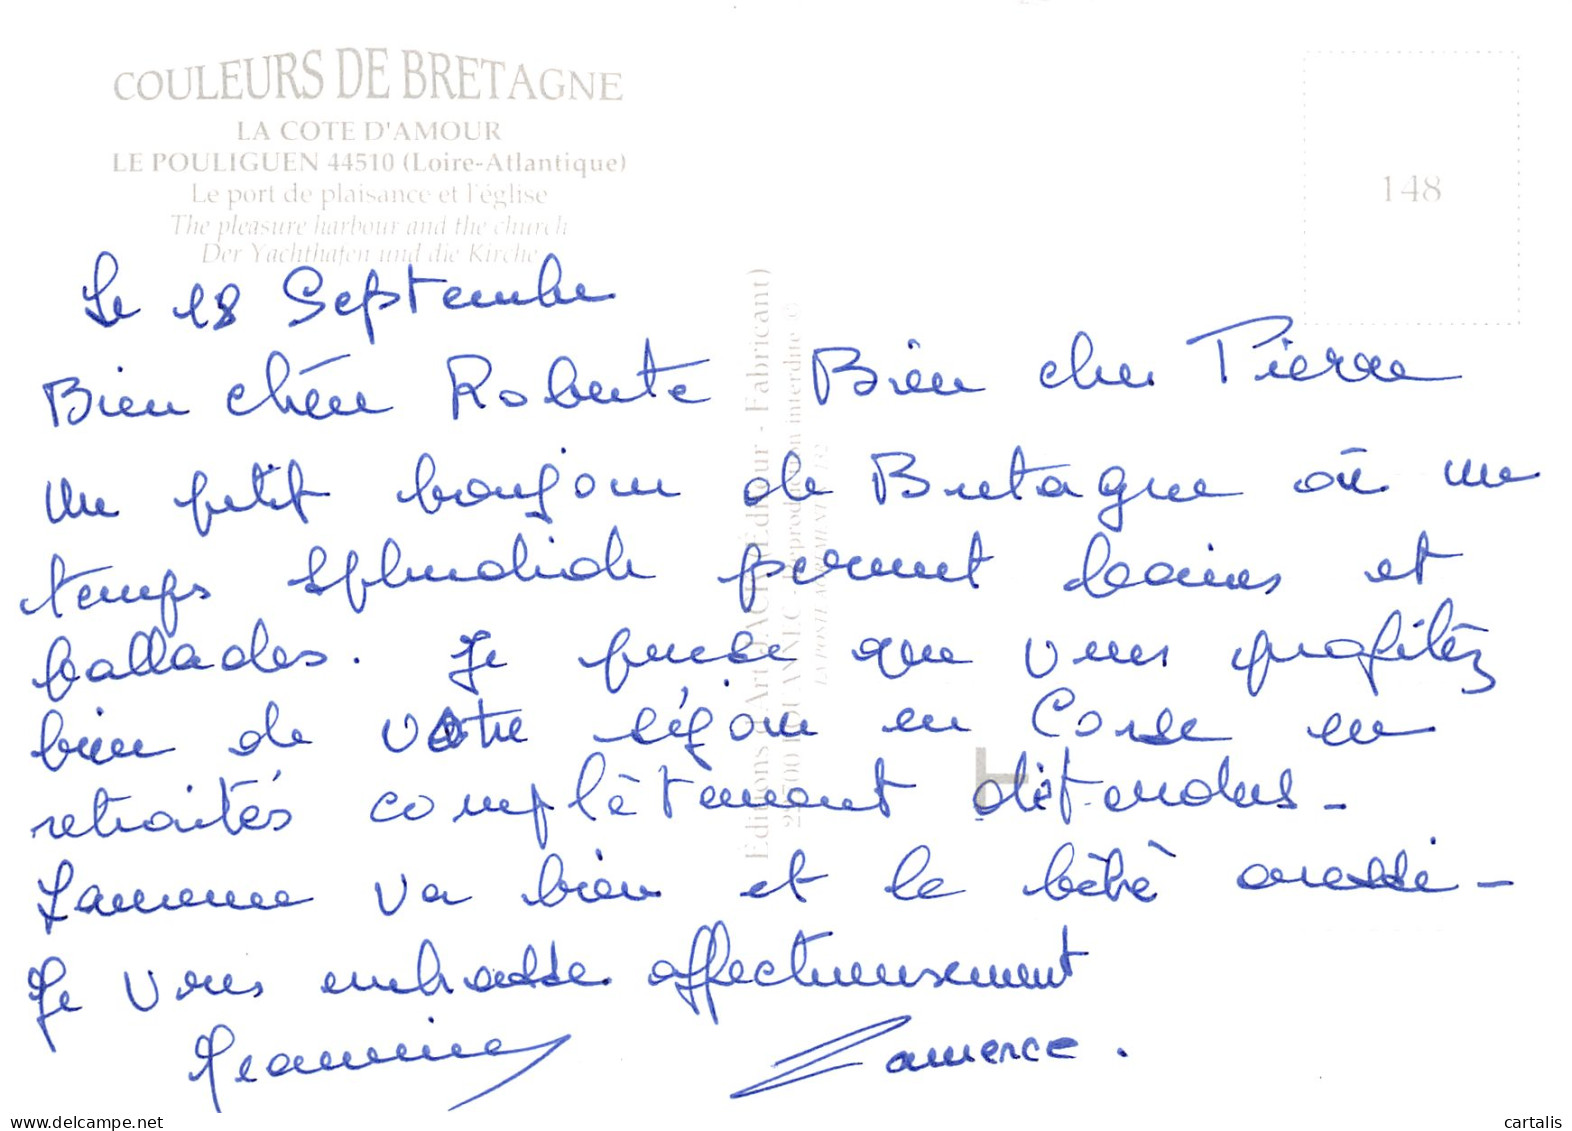 COULEURS DE BRETAGNE
LA COTE D'AMOUR
LE POULIGUEN 44510 (Loire-Atlantique)
Le port de plaisance et l'église
The pleasure harbour and the church
Der Yachthafen und die Kirche
148
Le 18 Septembre
Bien chère Roberte Bien cher Pierre
Un petit bonjour de Bretagne où un
temps splendide permet bains et
ballades. Je pense que vous profitéz
bien de votre séjour en Corse en
retraités complètement détendus -
Laurence va bien et le bébé aussi -
Je vous embrasse affectueusement
Jeannine Laurence.
Editions d'Art JACK Éditeur - Fabricant)
Reproduction interdite ©
LA POSTE AGREMENT
www.delcampe.net
cartalis